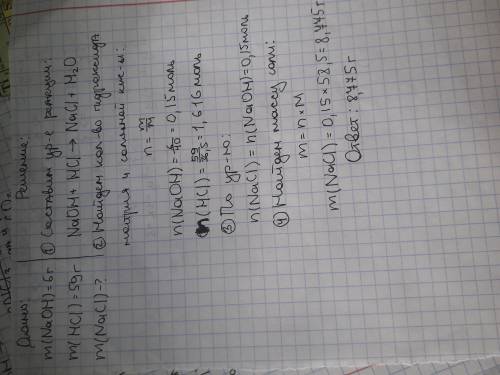 Дано:
m(NaOH)=6г
m(HCl)=59г
m(NaCl)-?
Решение:
① Составим ур-е реакции:
NaOH + HCl → NaCl + H₂O
② Найдем кол-во гидроксида
натрия и соляной кис-ы:
n = m/M
n(NaOH) = 6/40 = 0,15 моль
n(HCl) = 59/36,5 = 1,616 моль
③ По ур-ю:
n(NaCl) = n(NaOH) = 0,15 моль
④ Найдем массу соли:
m = n × M
m(NaCl) = 0,15 × 58,5 = 8,775 г
Ответ: 8,775 г